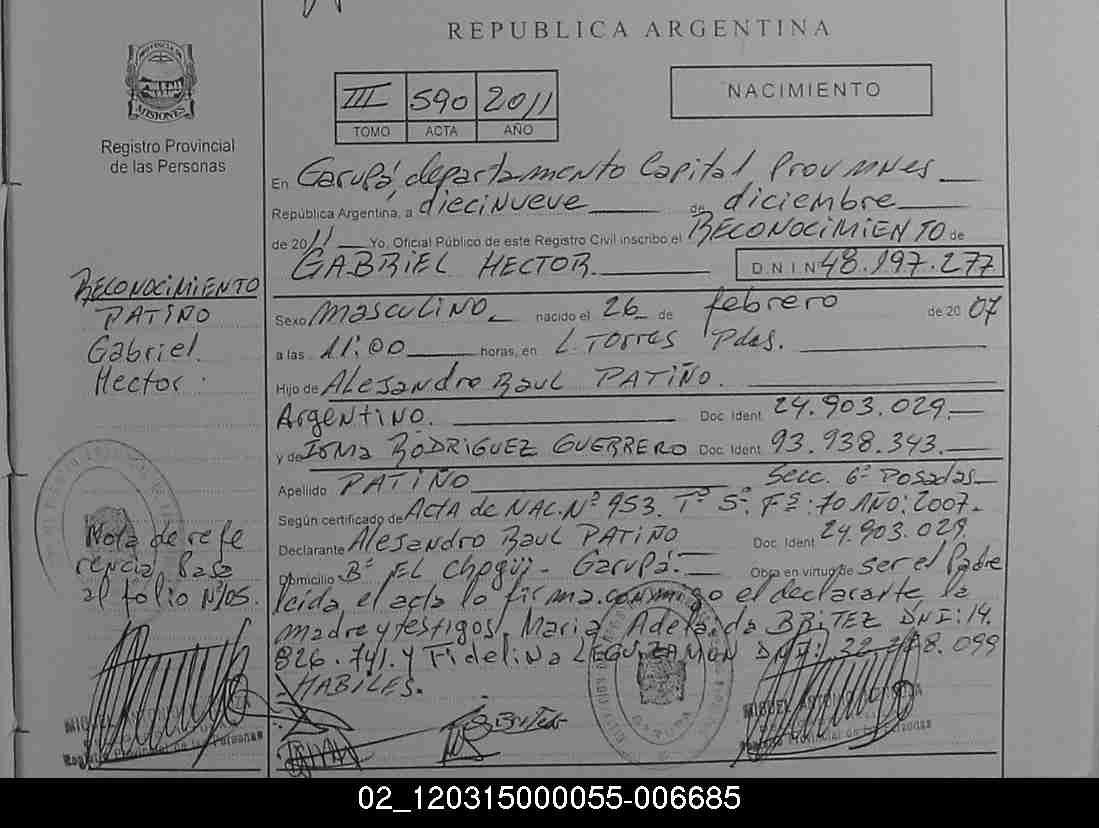 REPUBLICA ARGENTINA
PROVINCIA DE
MISIONES
Registro Provincial
de las Personas
III 590 2011
TOMO ACTA AÑO
NACIMIENTO
En Garupá, departamento Capital Prov MNes
República Argentina, a diecinueve de diciembre
de 2011 Yo, Oficial Público de este Registro Civil inscribo el RECONOCIMIENTO de
GABRIEL HECTOR. D.N.I.N 48.197.277
Sexo masculino nacido el 26 de febrero de 2007
a las 11:00 horas, en L. Torres Pdas.
Hijo de Alejandro Raul PATIÑO.
Argentino. Doc. Ident. 24.903.029.
y de Irma RODRIGUEZ GUERRERO Doc. Ident. 93.938.343.
Apellido PATIÑO Secc. 6ª Posadas
Según certificado de Acta de NAC. Nº 953. Tº 5º. Fº: 70 AÑO: 2007.
Declarante Alejandro Raul PATIÑO Doc. Ident. 24.903.029.
Domicilio Bº EL Chogüi - Garupá. Obra en virtud de ser el Padre
leida el acta lo firma conmigo el declarante, la
madre y testigos, Maria Adelaida BRITEZ DNI: 14.
826.741. y Fidelina LEGUIZAMON DNI: 099
HABILES.
RECONOCIMIENTO
PATIÑO
Gabriel
Hector.
Nota de refe
rencia Pasa
al folio Nº 105.
Registro Provincial de las Personas
Provincial de las Personas
GARUPA
02_120315000055-006685